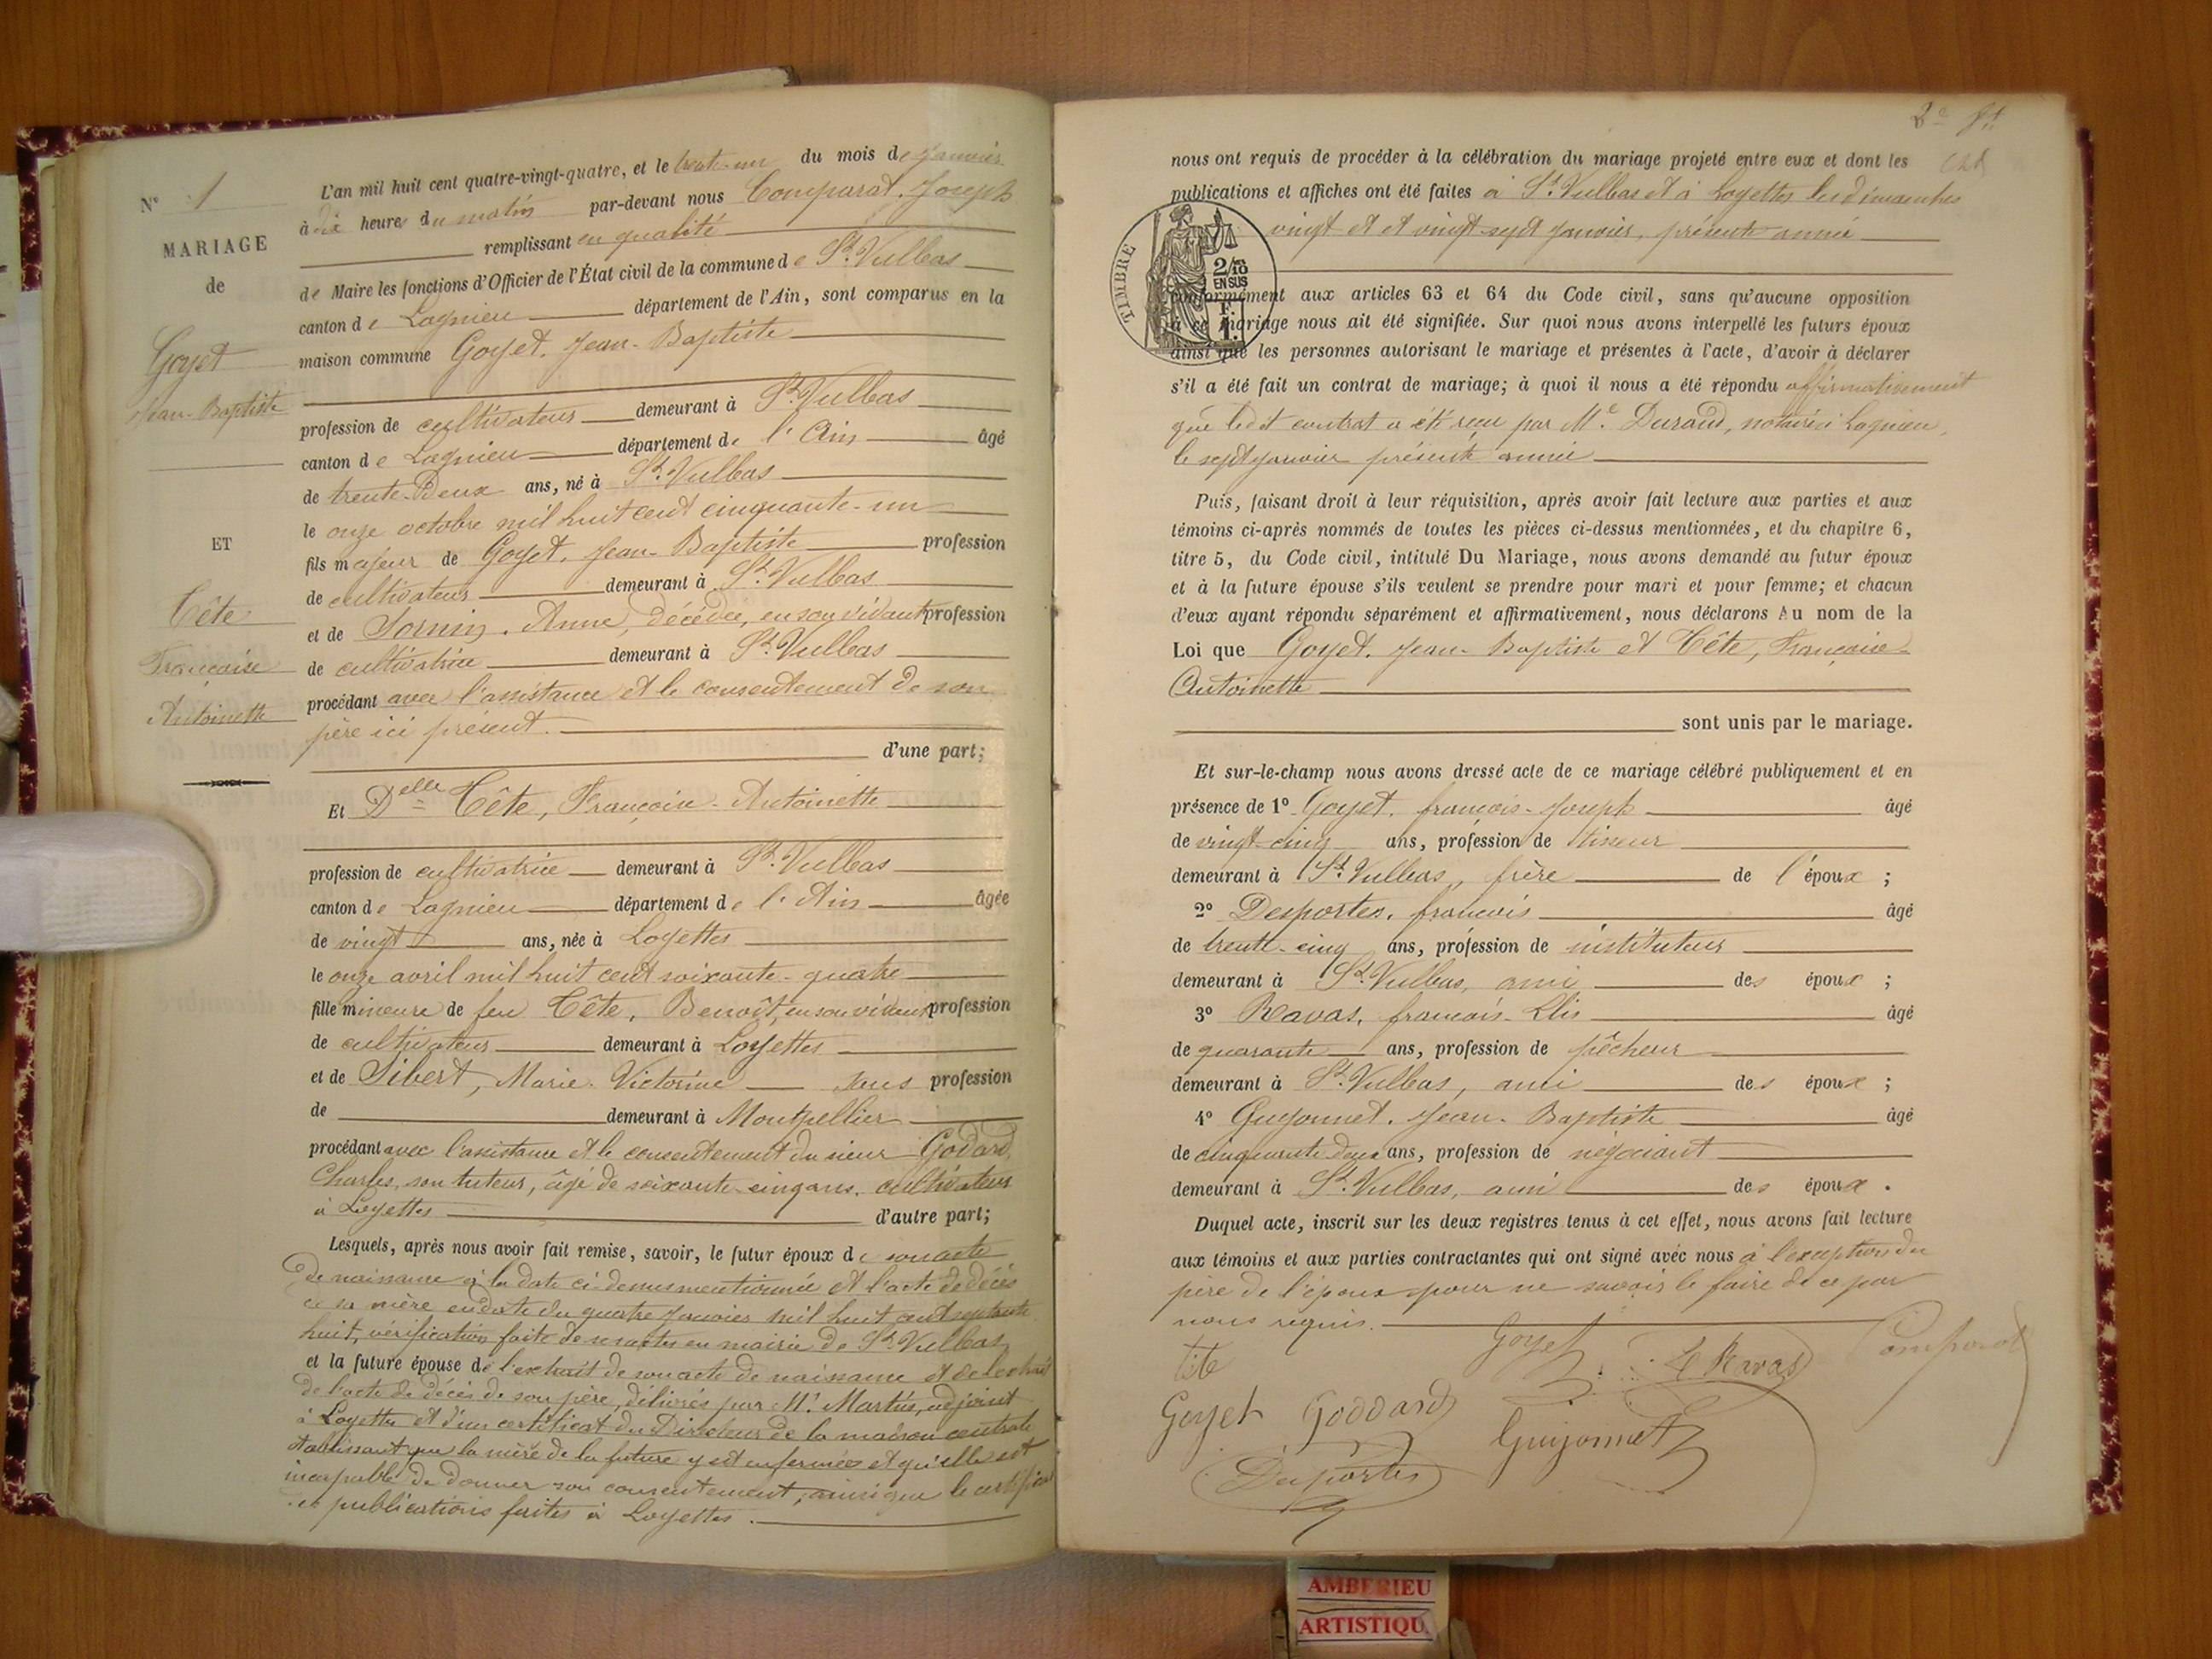 L'an mil huit cent quatre-vingt-quatre, et le trente-un du mois de janvier
N° 1
à dix heure du matin par-devant nous Comparat, Joseph
MARIAGE
remplissant en qualité
de
de Maire les fonctions d'Officier de l'État civil de la commune de St. Vulbas
canton de Lagnieu département de l'Ain, sont comparus en la
Goyet
maison commune Goyet, Jean-Baptiste
Jean-Baptiste
profession de cultivateur demeurant à St. Vulbas
canton de Lagnieu département de l'Ain âgé
de trente-deux ans, né à St. Vulbas
le onze octobre mil huit cent cinquante-un
ET
fils majeur de Goyet, Jean-Baptiste profession
de cultivateur demeurant à St. Vulbas
Tête
et de Sornin, Anne, décédée, en son vivant profession
Françoise
de cultivatrice demeurant à St. Vulbas
Antoinette
procédant avec l'assistance et le consentement de son
père ici présent.
d'une part;
Et Delle Tête, Françoise-Antoinette
profession de cultivatrice demeurant à St. Vulbas
canton de Lagnieu département de l'Ain âgée
de vingt ans, née à Loyettes
le onze avril mil huit cent soixante-quatre
fille mineure de feu Tête, Benoît, en son vivant profession
de cultivateur demeurant à Loyettes
et de Sibert, Marie-Victorine sans profession
de demeurant à Montpellier
procédant avec l'assistance et le consentement du sieur Godard,
Charles, son tuteur, âgé de soixante-cinq ans, cultivateur
à Loyettes d'autre part;
Lesquels, après nous avoir fait remise, savoir, le futur époux de son acte
de naissance à la date ci-dessus mentionnée et l'acte de décès
de sa mère en date du quatre janvier mil huit cent septante
huit, vérification faite de ses actes en mairie de St. Vulbas
et la future épouse de l'extrait de son acte de naissance et de l'extrait
de l'acte de décès de son père, délivrés par Mr. Martin, adjoint
à Loyettes et d'un certificat du Directeur de la maison centrale
établissant que la mère de la future y est enfermée et qu'elle est
incapable de donner son consentement; ainsi que le certificat
de publications faites à Loyettes.
2e ft.
nous ont requis de procéder à la célébration du mariage projeté entre eux et dont les
publications et affiches ont été faites à St. Vulbas et à Loyettes les dimanches
vingt et et vingt-sept janvier, présente année
TIMBRE
2/10
EN SUS
F.
1.
conformément aux articles 63 et 64 du Code civil, sans qu'aucune opposition
à ce mariage nous ait été signifiée. Sur quoi nous avons interpellé les futurs époux
ainsi que les personnes autorisant le mariage et présentes à l'acte, d'avoir à déclarer
s'il a été fait un contrat de mariage; à quoi il nous a été répondu affirmativement
que ledit contrat a été reçu par Me. Durand, notaire à Lagnieu,
le sept janvier présente année
Puis, faisant droit à leur réquisition, après avoir fait lecture aux parties et aux
témoins ci-après nommés de toutes les pièces ci-dessus mentionnées, et du chapitre 6,
titre 5, du Code civil, intitulé Du Mariage, nous avons demandé au futur époux
et à la future épouse s'ils veulent se prendre pour mari et pour femme; et chacun
d'eux ayant répondu séparément et affirmativement, nous déclarons Au nom de la
Loi que Goyet, Jean-Baptiste et Tête, Françoise-
Antoinette
sont unis par le mariage.
Et sur-le-champ nous avons dressé acte de ce mariage célébré publiquement et en
présence de 1° Goyet, françois-Joseph âgé
de vingt-cinq ans, profession de tisseur
demeurant à St. Vulbas, frère de l'époux;
2° Desportes, françois âgé
de trente-cinq ans, profession de instituteur
demeurant à St. Vulbas, ami des époux;
3° Ravas, françois âgé
de quarante ans, profession de pêcheur
demeurant à St. Vulbas, ami des époux;
4° Guyonnet, Jean-Baptiste âgé
de cinquante-deux ans, profession de négociant
demeurant à St. Vulbas, ami des époux.
Duquel acte, inscrit sur les deux registres tenus à cet effet, nous avons fait lecture
aux témoins et aux parties contractantes qui ont signé avec nous à l'exception du
père de l'époux pour ne savoir le faire de ce par
nous requis.
tête Goyet F Ravas Comparat
Goyet Goddard Guyonnet
Desportes
AMBERIEU
ARTISTIQU